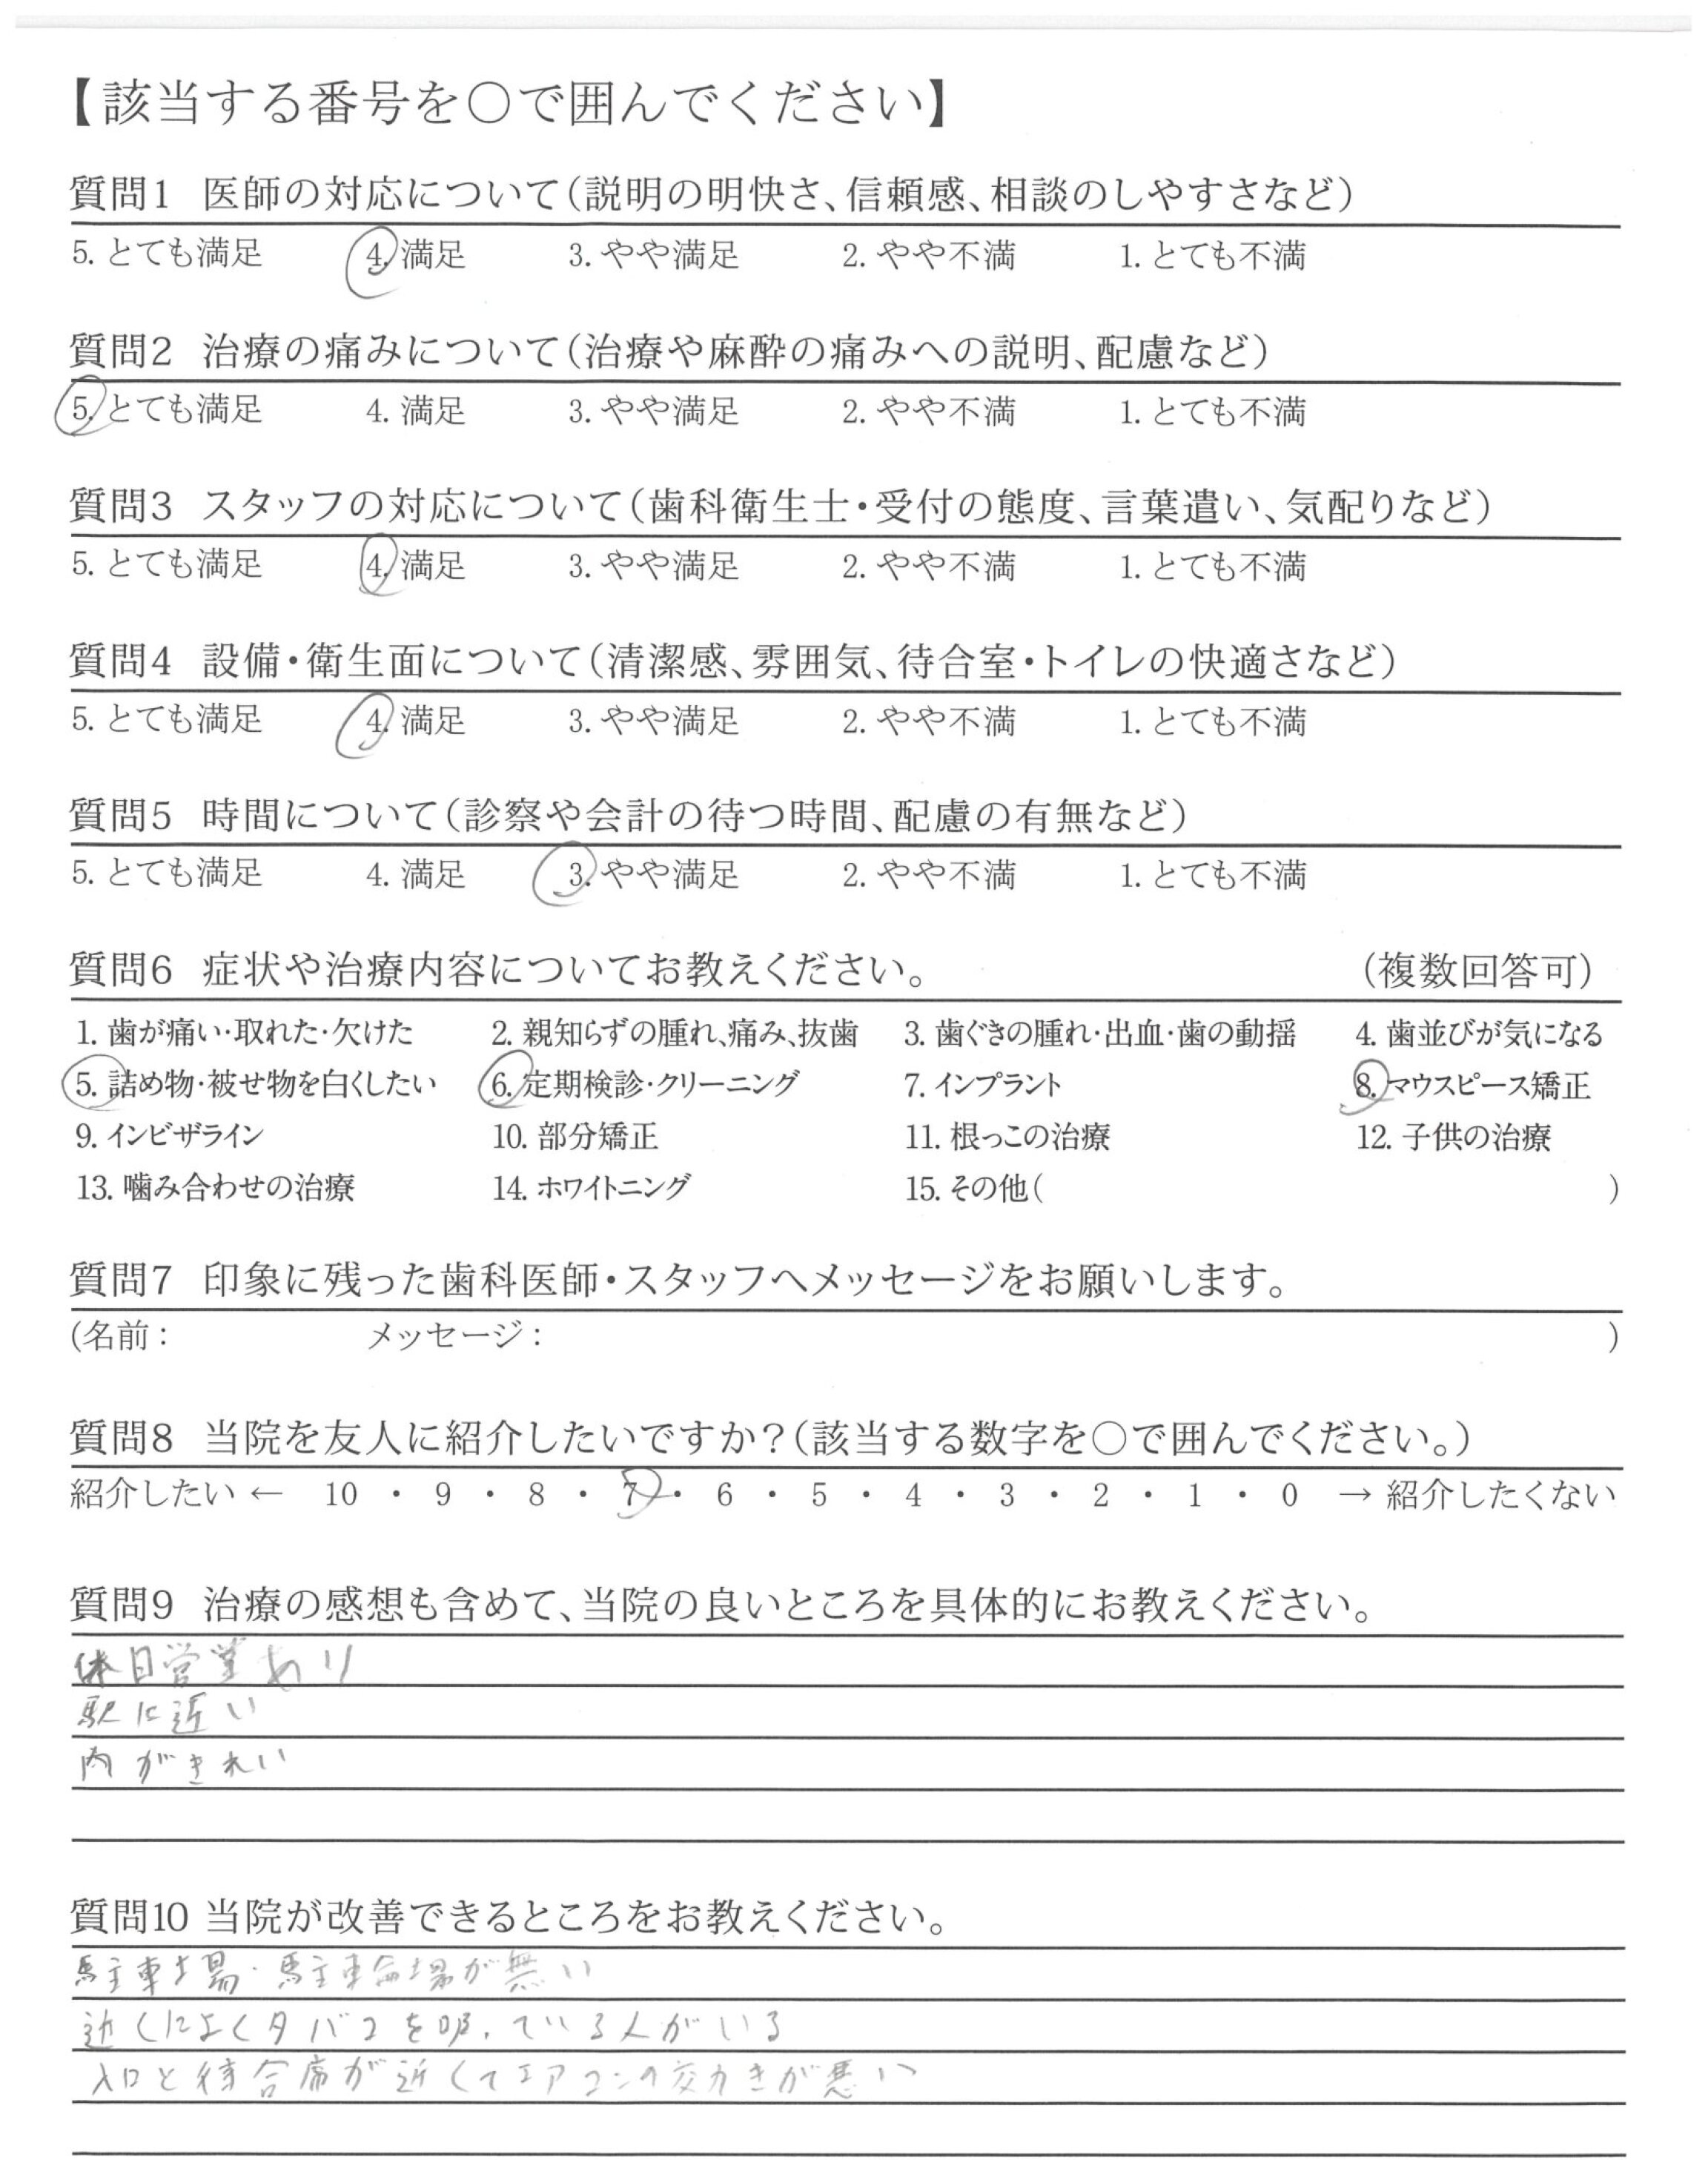 【該当する番号を○で囲んでください】
質問1 医師の対応について(説明の明快さ、信頼感、相談のしやすさなど)
5. とても満足 4. 満足 3. やや満足 2. やや不満 1. とても不満
質問2 治療の痛みについて(治療や麻酔の痛みへの説明、配慮など)
5. とても満足 4. 満足 3. やや満足 2. やや不満 1. とても不満
質問3 スタッフの対応について(歯科衛生士・受付の態度、言葉遣い、気配りなど)
5. とても満足 4. 満足 3. やや満足 2. やや不満 1. とても不満
質問4 設備・衛生面について(清潔感、雰囲気、待合室・トイレの快適さなど)
5. とても満足 4. 満足 3. やや満足 2. やや不満 1. とても不満
質問5 時間について(診察や会計の待つ時間、配慮の有無など)
5. とても満足 4. 満足 3. やや満足 2. やや不満 1. とても不満
質問6 症状や治療内容についてお教えください。 (複数回答可)
1. 歯が痛い・取れた・欠けた 2. 親知らずの腫れ、痛み、抜歯 3. 歯ぐきの腫れ・出血・歯の動揺 4. 歯並びが気になる
5. 詰め物・被せ物を白くしたい 6. 定期検診・クリーニング 7. インプラント 8. マウスピース矯正
9. インビザライン 10. 部分矯正 11. 根っこの治療 12. 子供の治療
13. 噛み合わせの治療 14. ホワイトニング 15. その他( )
質問7 印象に残った歯科医師・スタッフへメッセージをお願いします。
(名前: メッセージ: )
質問8 当院を友人に紹介したいですか?(該当する数字を○で囲んでください。)
紹介したい ← 10 ・ 9 ・ 8 ・ 7 ・ 6 ・ 5 ・ 4 ・ 3 ・ 2 ・ 1 ・ 0 → 紹介したくない
質問9 治療の感想も含めて、当院の良いところを具体的にお教えください。
休日営業あり
駅に近い
内がきれい
質問10 当院が改善できるところをお教えください。
駐車場・駐車輪場が無い
近くによくタバコを吸っている人がいる
入口と待合席が近くてエアコンの効きが悪い